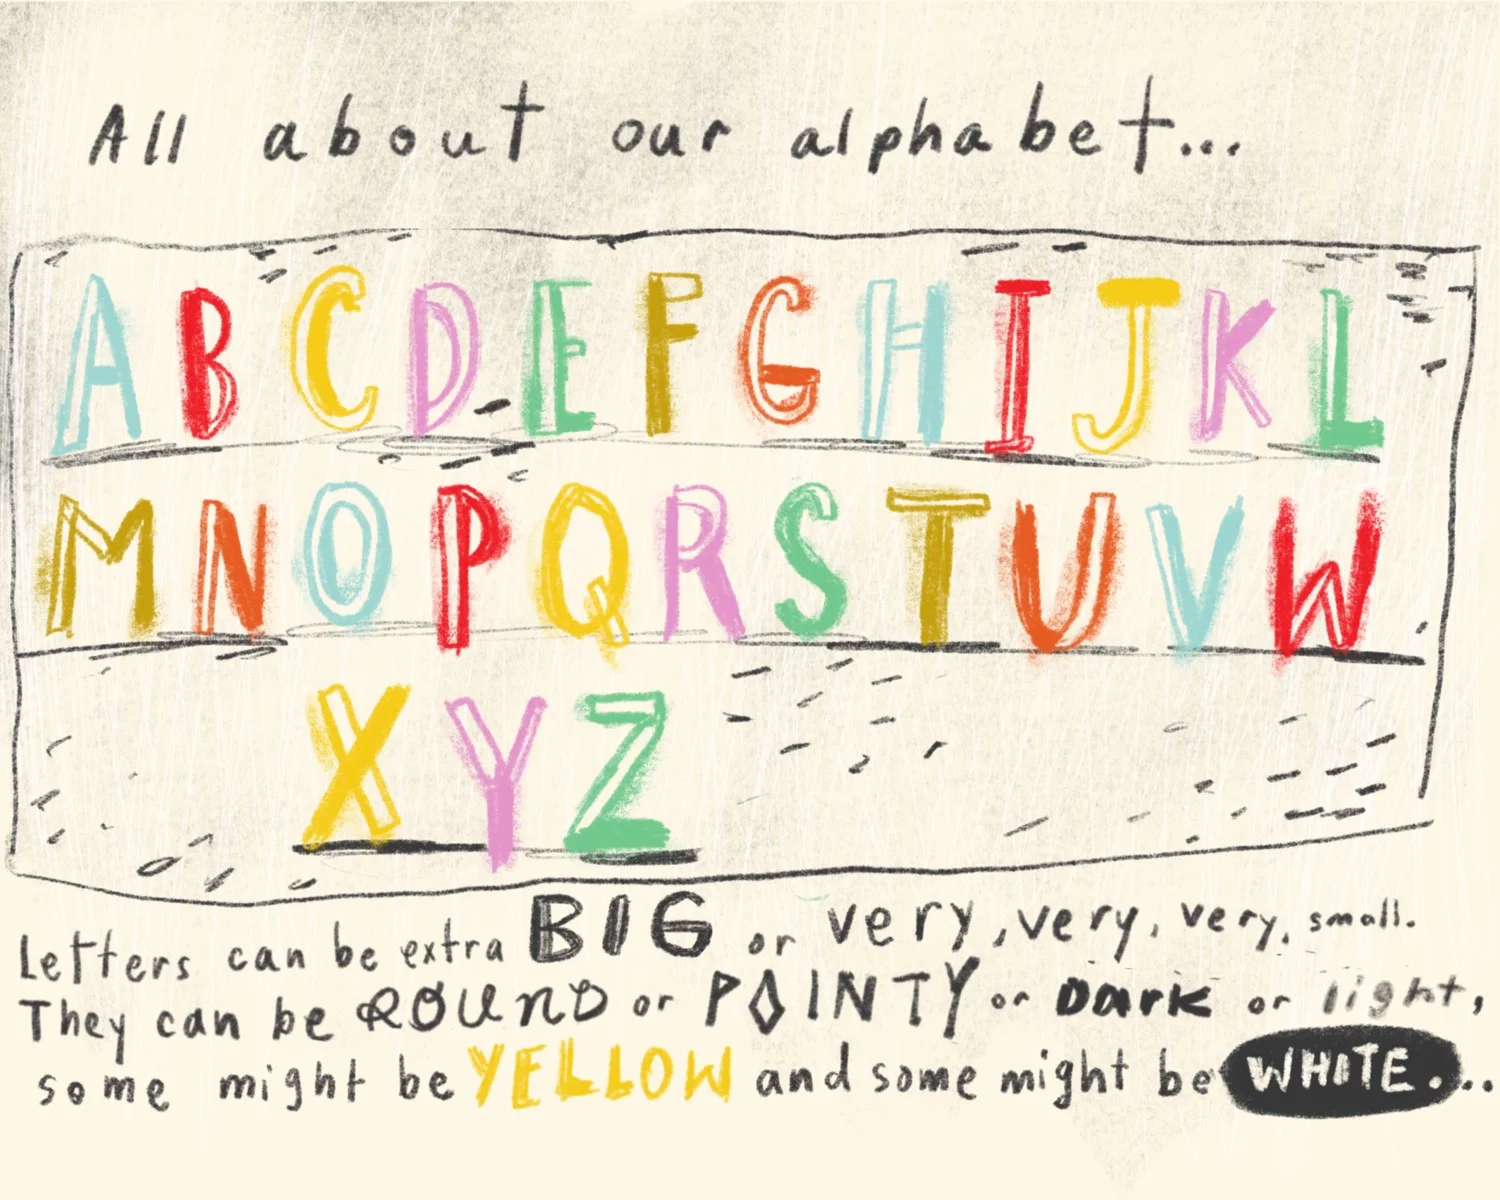 All about our alphabet...
A B C D E F G H I J K L
M N O P Q R S T U V W
X Y Z
Letters can be extra BIG or very, very, very, small.
They can be ROUND or POINTY or Dark or light,
some might be YELLOW and some might be WHITE...